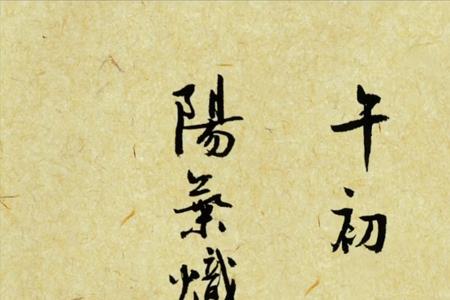 午初
陽葉熾